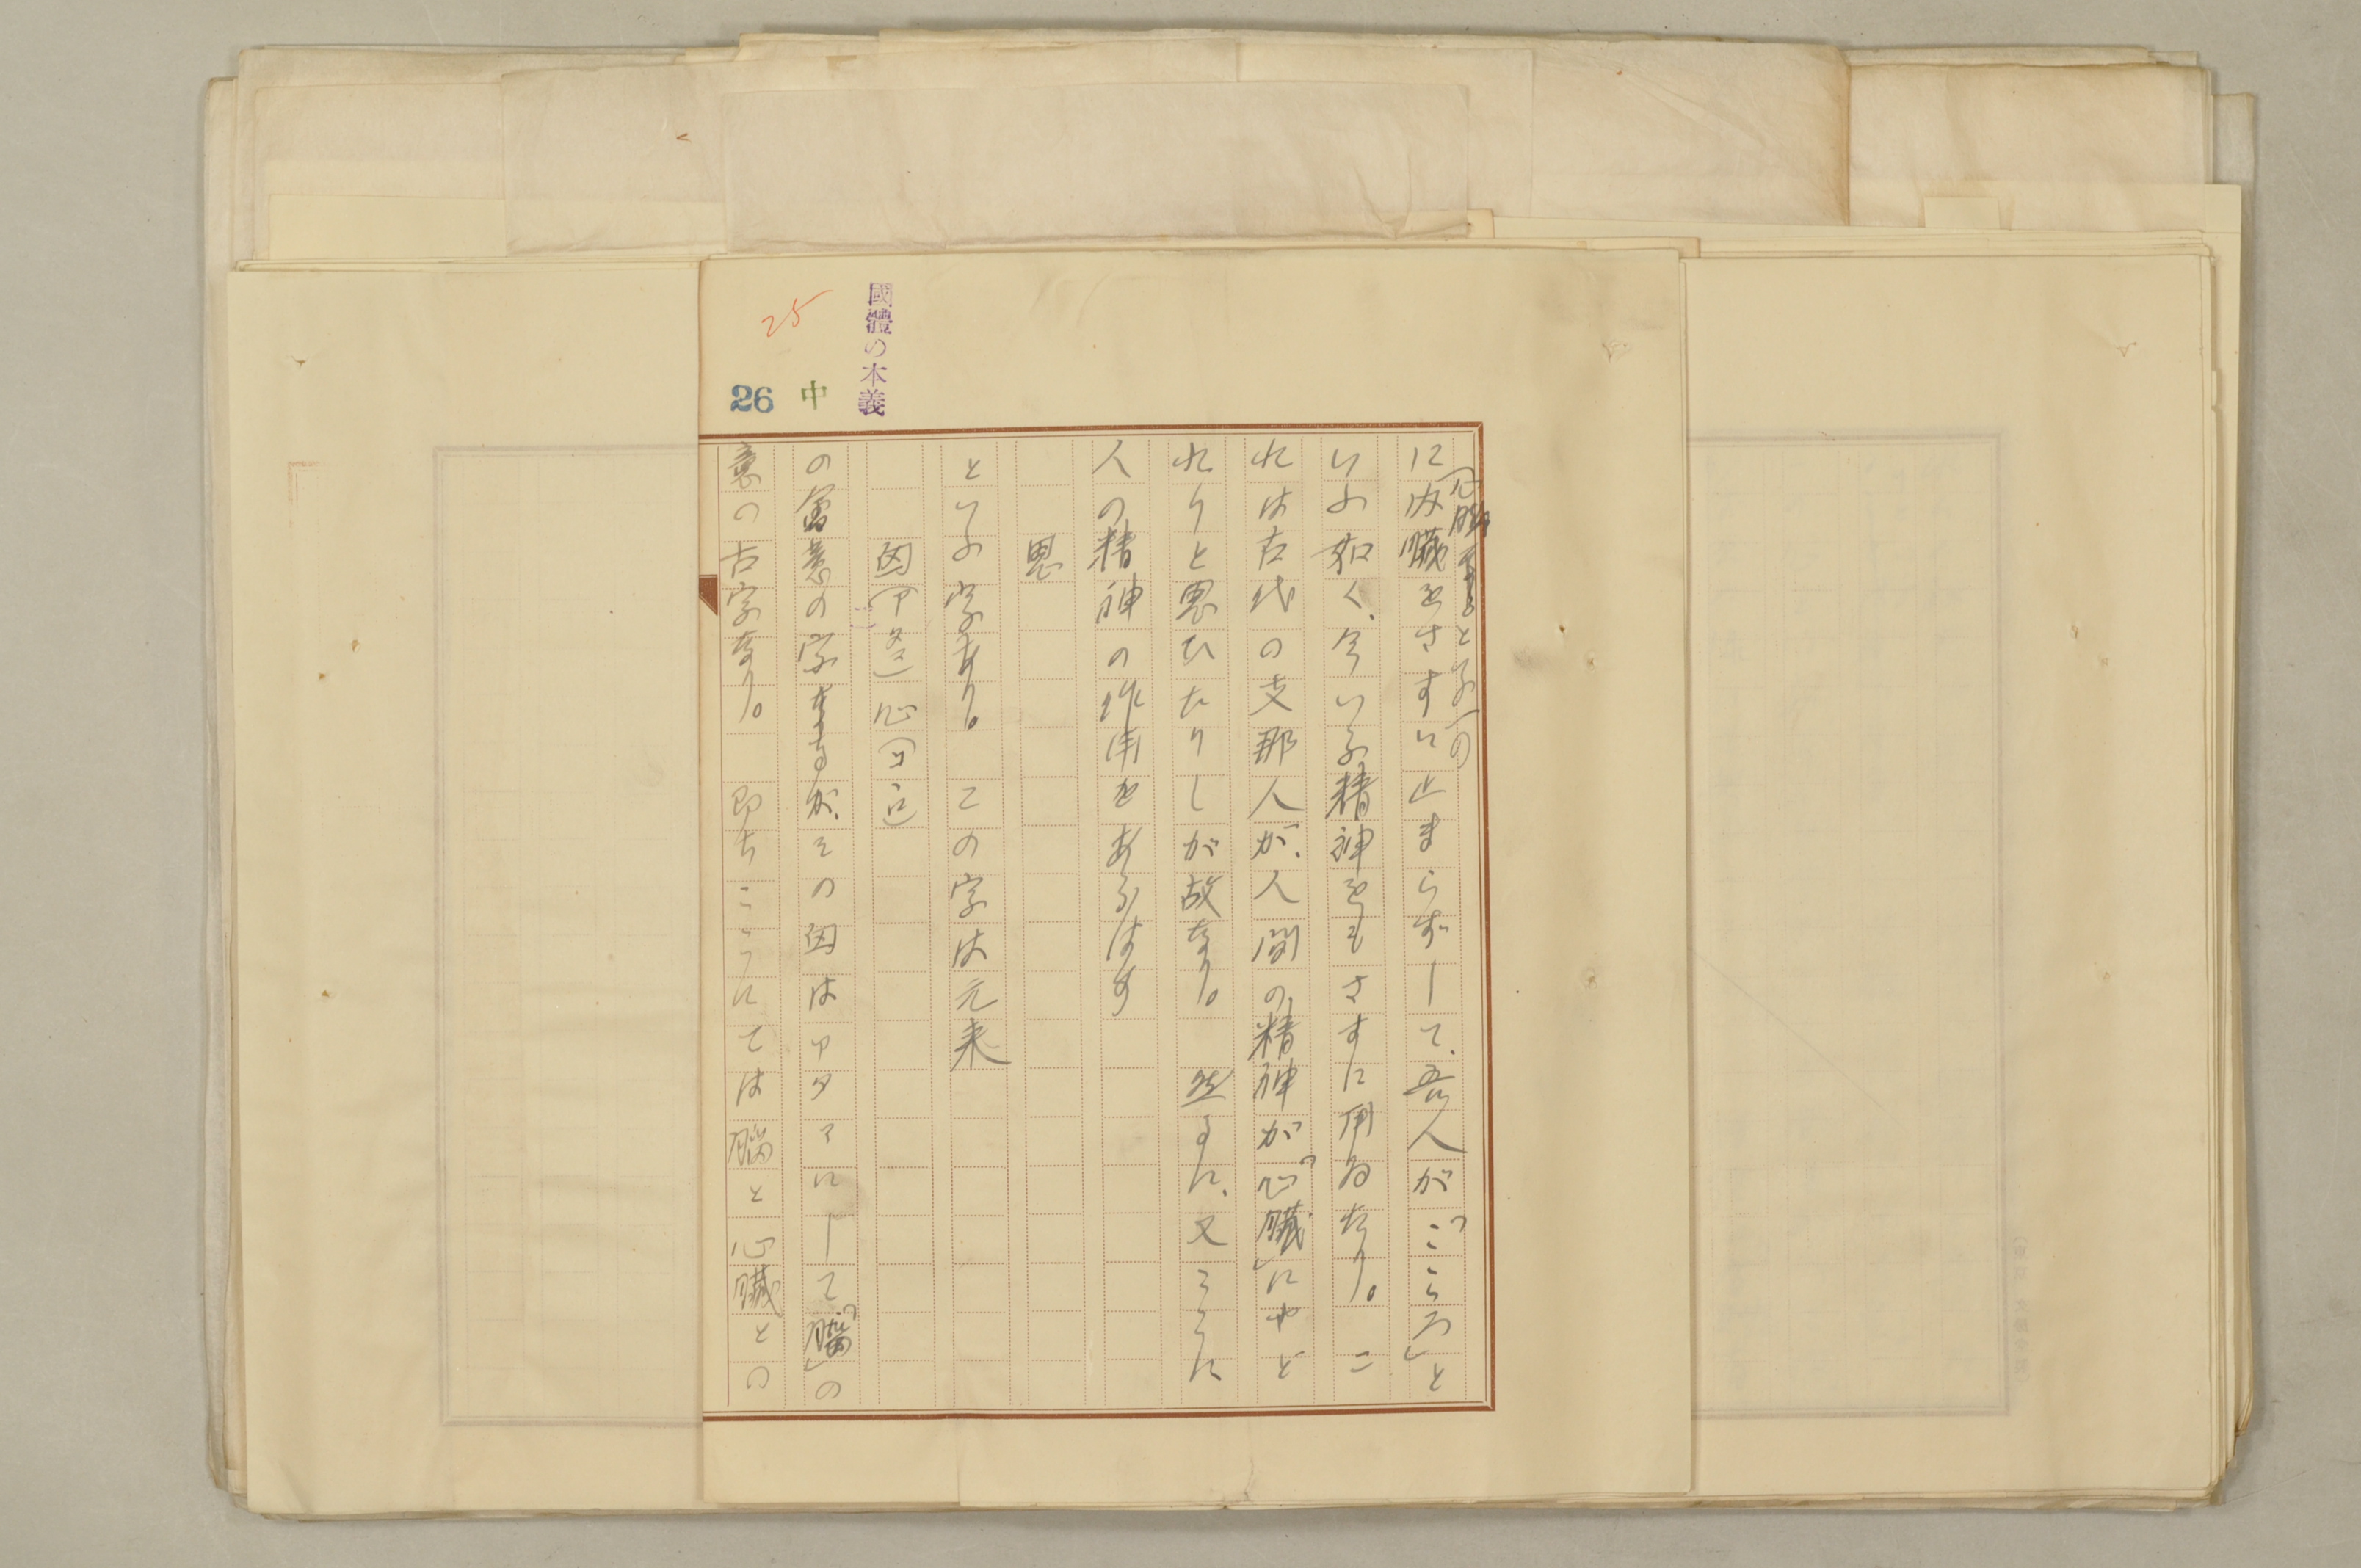 國體の本義
中
25
26
に内臓をさすに止まらずして、吾人が「こころ」と
いふ如く、今いふ精神をもさすに用ゐたり。こ
れは古代の支那人が、人間の精神が「心臓」にやど
れりと思ひたりしが故なり。　然るに、又ここに
人の精神の作用をあらはす
思
といふ字あり。　この字は元来
囟(アタマ)心(ココロ)
の會意の字なるが、その囟はアタマにして「腦」の
意の古字なり。　即ちここにては腦と心臓との